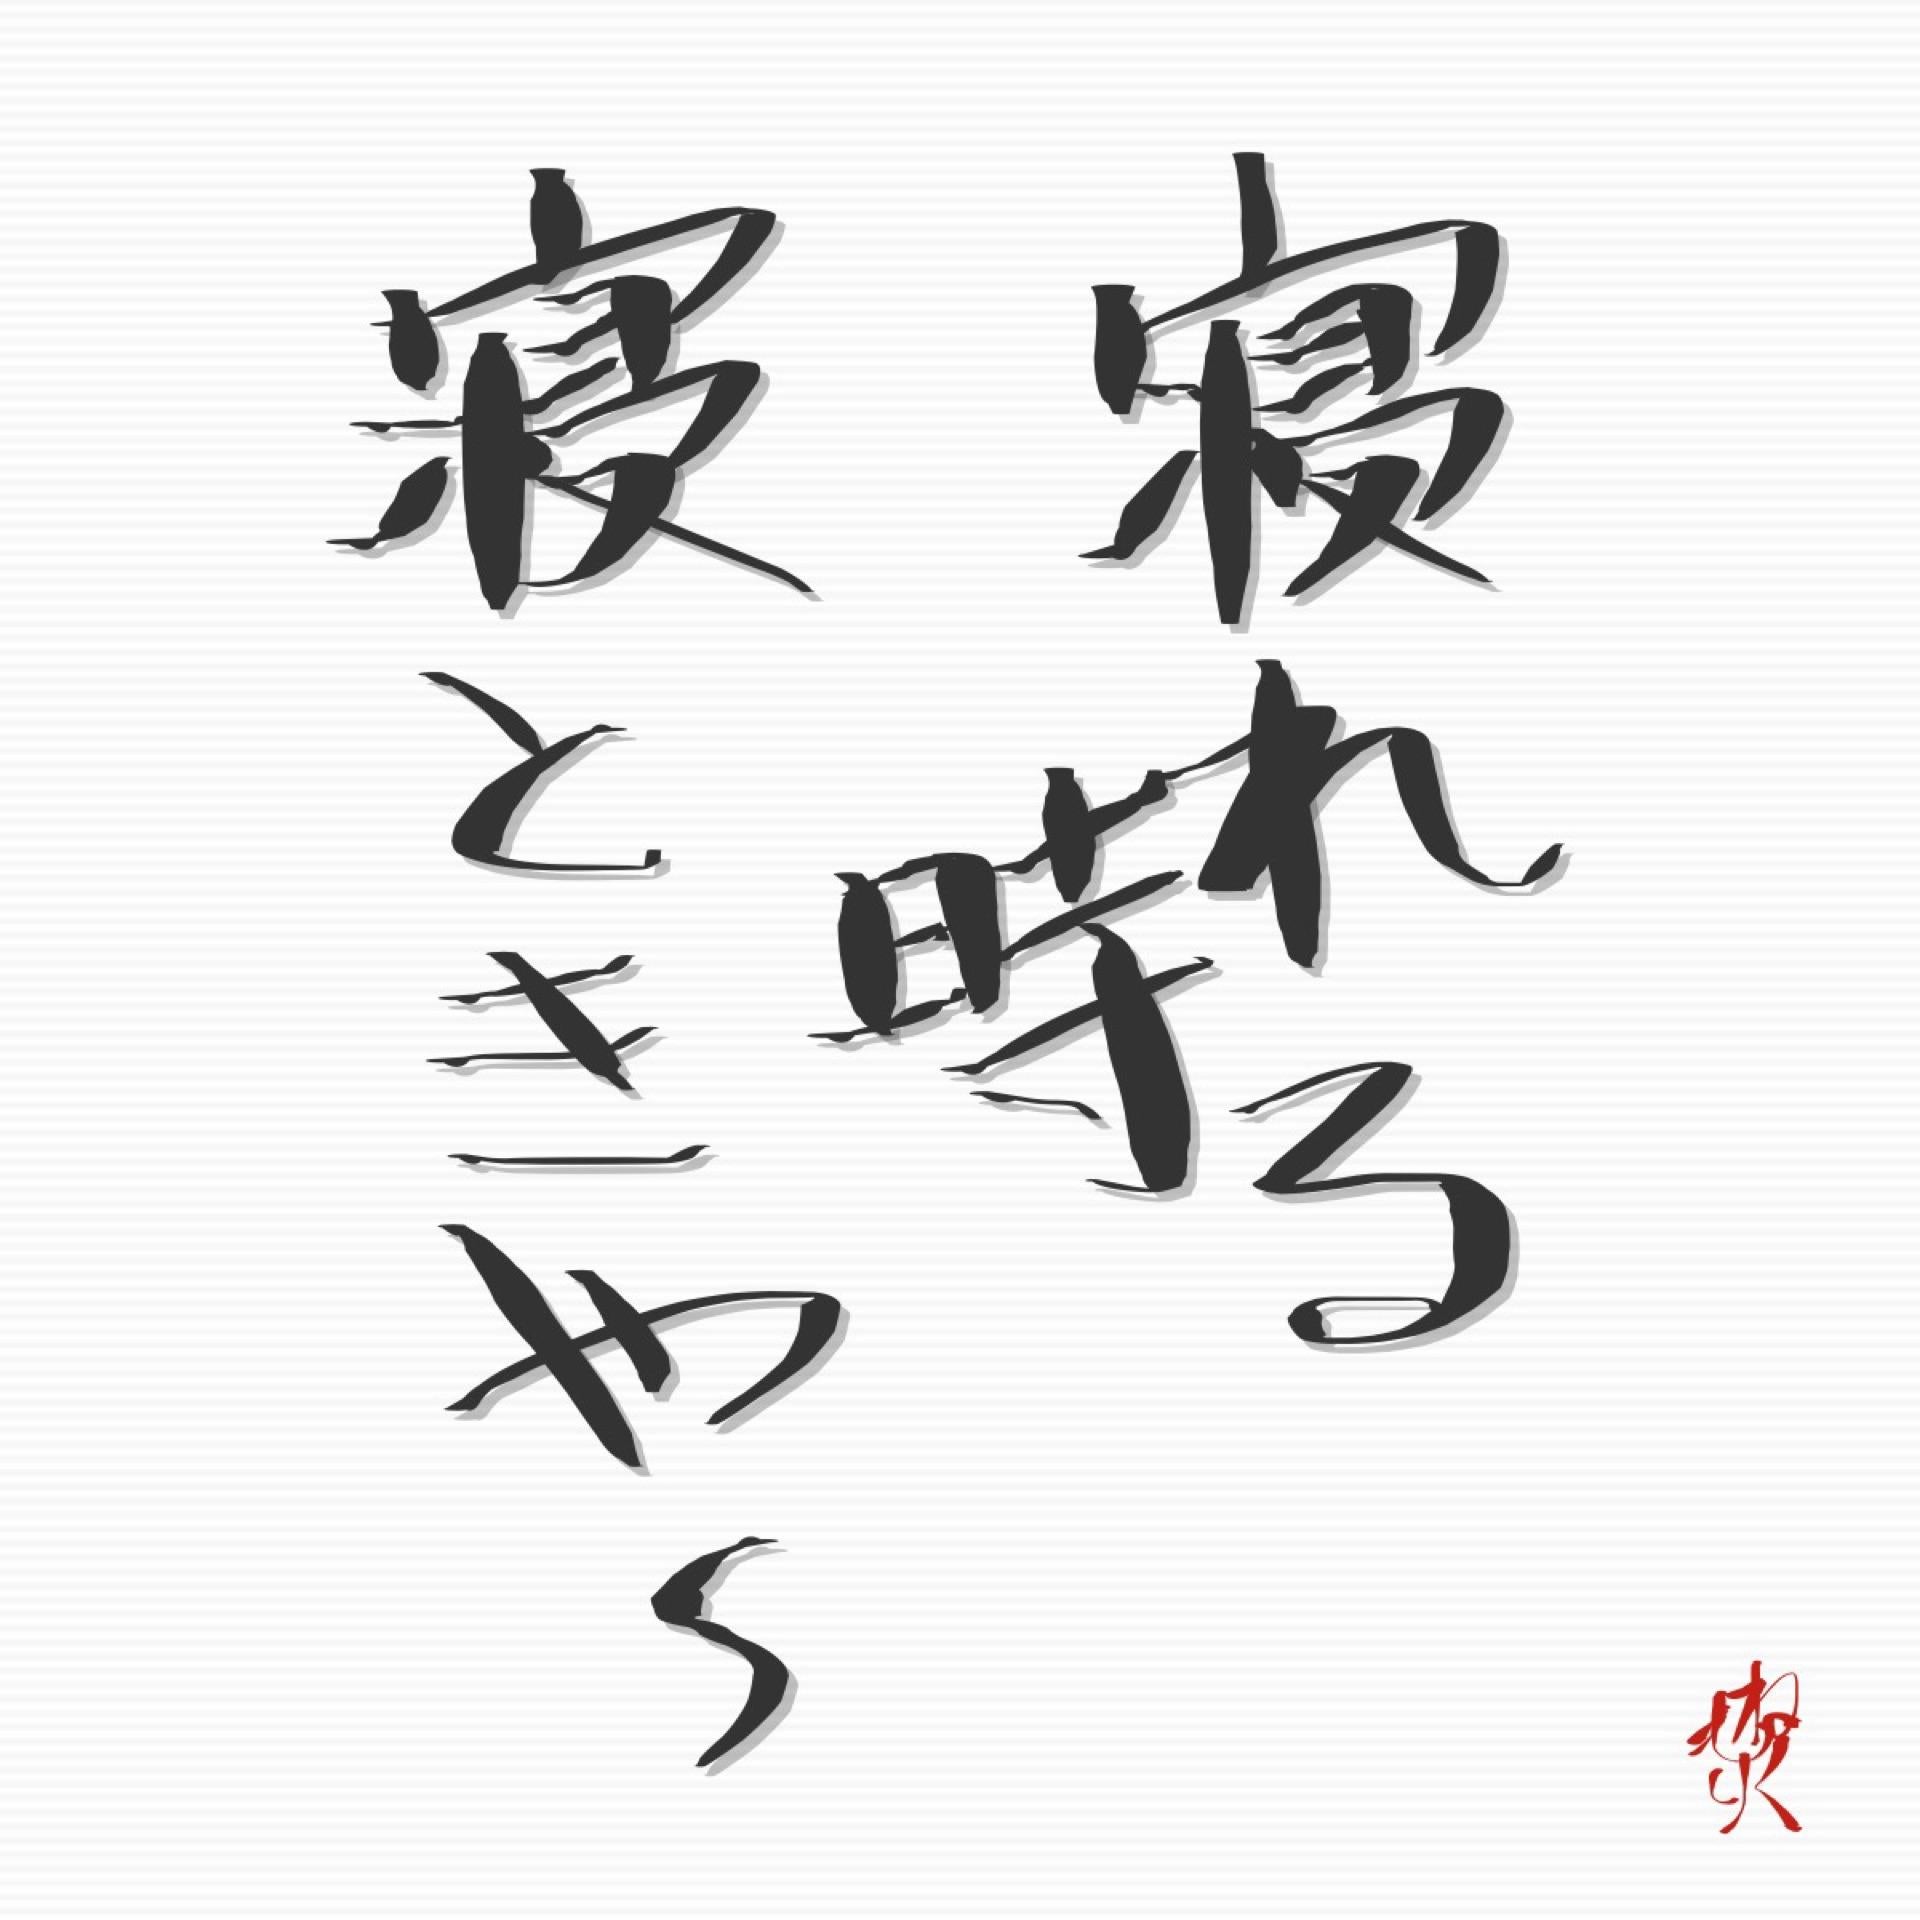 寝れる時
寝ときや〜